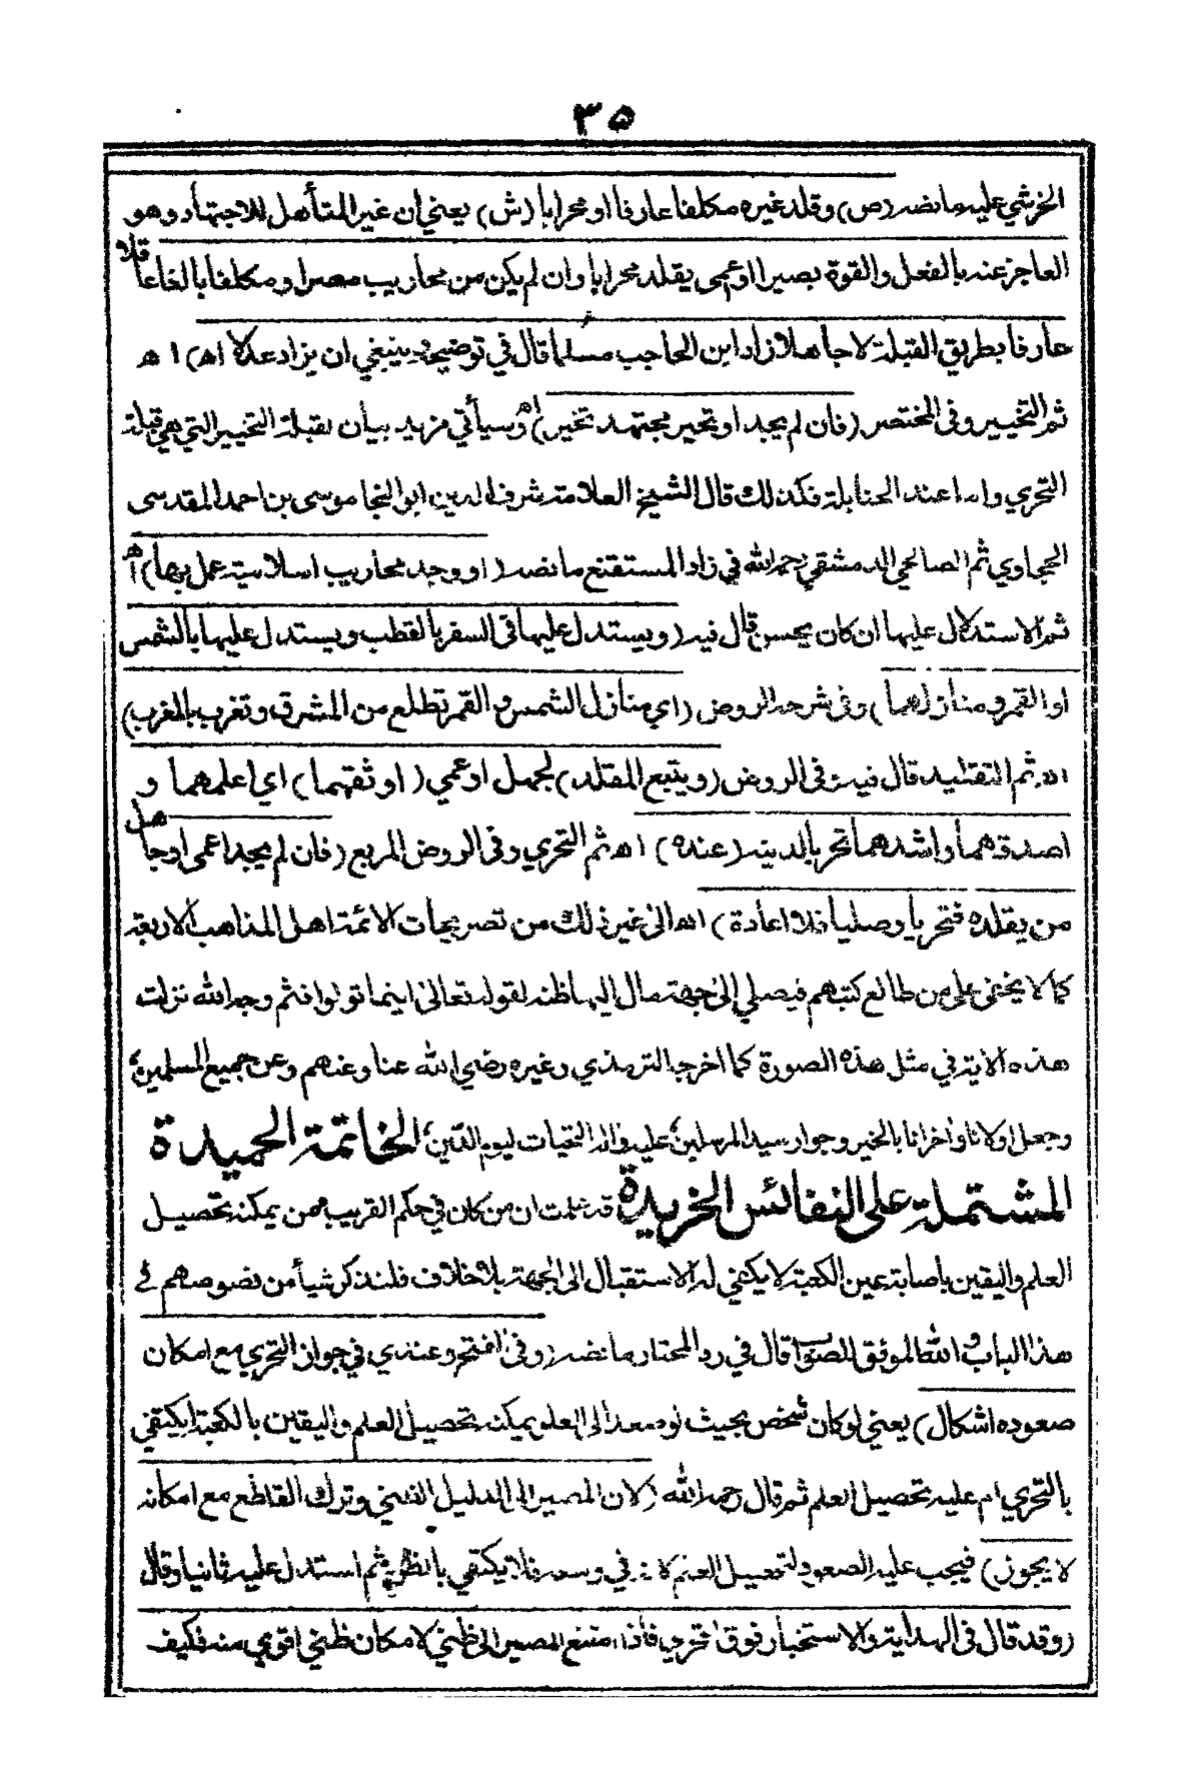 ٣٥
الخرشي عليه ما نصه (ص) وقلد غيره مكلفا عارفا او محرابا (ش) يعني ان غير المتأهل للاجتهاد وهو
العاجز عنه بالفعل والقوة بصيرا او عمى يقلد محرابا وان لم يكن من محاريب مصرا ومكلفا بالغا عاقلا
عارفا بطريق القبلة لا جاهلا زاد ابن الحاجب مسلما قال في توضيحه وينبغي ان يزاد عدلا اه) اه
ثم التخيير وفى المختصر (فان لم يجد او تحير مجتهد تخير) اه وسيأتي مزيد بيان لقبلة التخيير التي هي قبلة
التحري واما عند الحنابلة فكذلك قال الشيخ العلامة شرف الدين ابو النجا موسى بن احمد المقدسى
الحجاوي ثم الصالحي الدمشقي رحمه الله في زاد المستقنع ما نصه (او وجد محاريب اسلامية عمل بها) اه
ثم الاستدلال عليها ان كان يحسن قال فيه (ويستدل عليها في السفر بالقطب ويستدل عليها بالشمس
او القمر ومنازلهما) وفى شرحه الروض (اي منازل الشمس والقمر تطلع من المشرق وتغرب بالمغرب)
اه ثم التقليد قال فيه وفى الروض (ويتبع المقلد) لجهل او عمي (اوثقهما) اي اعلمهما و
اصدقهما واشدهما تحريا لدينه (عنده) اه ثم التحري وفى الروض المربع (فان لم يجد اعمى او جاهل
من يقلده فتحريا وصليا فلا اعادة) اه الى غير ذلك من تصريحات الائمة اهل المذاهب الاربعة
كما لا يخفى على من طالع كتبهم فيصلي إلى جهة مال اليها ظنه لقوله تعالى اينما تولوا فثم وجه الله نزلت
هذه الاية في مثل هذه الصورة كما اخرجه الترمذي وغيره رضي الله عنا وعنهم وعن جميع المسلمين،
وجعل اولانا واخرانا بالخير وجوار سيد المرسلين، عليه واله التحيات ليوم الدين، الخاتمة الحميدة
المشتملة على النفائس الخريدة قد علمت ان من كان في حكم القريب ممن يمكنه تحصيل
العلم واليقين باصابة عين الكعبة لا يكفي له الاستقبال الى الجهة بلا خلاف فلنذكر شيأ من نصوصهم في
هذا الباب والله الموفق للصواب قال في رد المحتار ما نصه (وفى الفتح وعندي في جواز التحري مع امكان
صعوده اشكال) يعني لو كان شخص بحيث لو صعد الى العلو يمكنه تحصيل العلم واليقين بالكعبة ايكتفي
بالتحري ام عليه تحصيل العلم ثم قال رحمه الله (لان المصير الى الدليل الظني وترك القاطع مع امكانه
لا يجوز) فيجب عليه الصعود لتحصيل العلم لانه في وسعه فلا يكتفي بالظن ثم استدل عليه ثانيا وقال
(وقد قال فى الهداية والاستخبار فوق التحري فاذا امتنع المصير الى ظني لامكان ظني اقوي منه فكيف